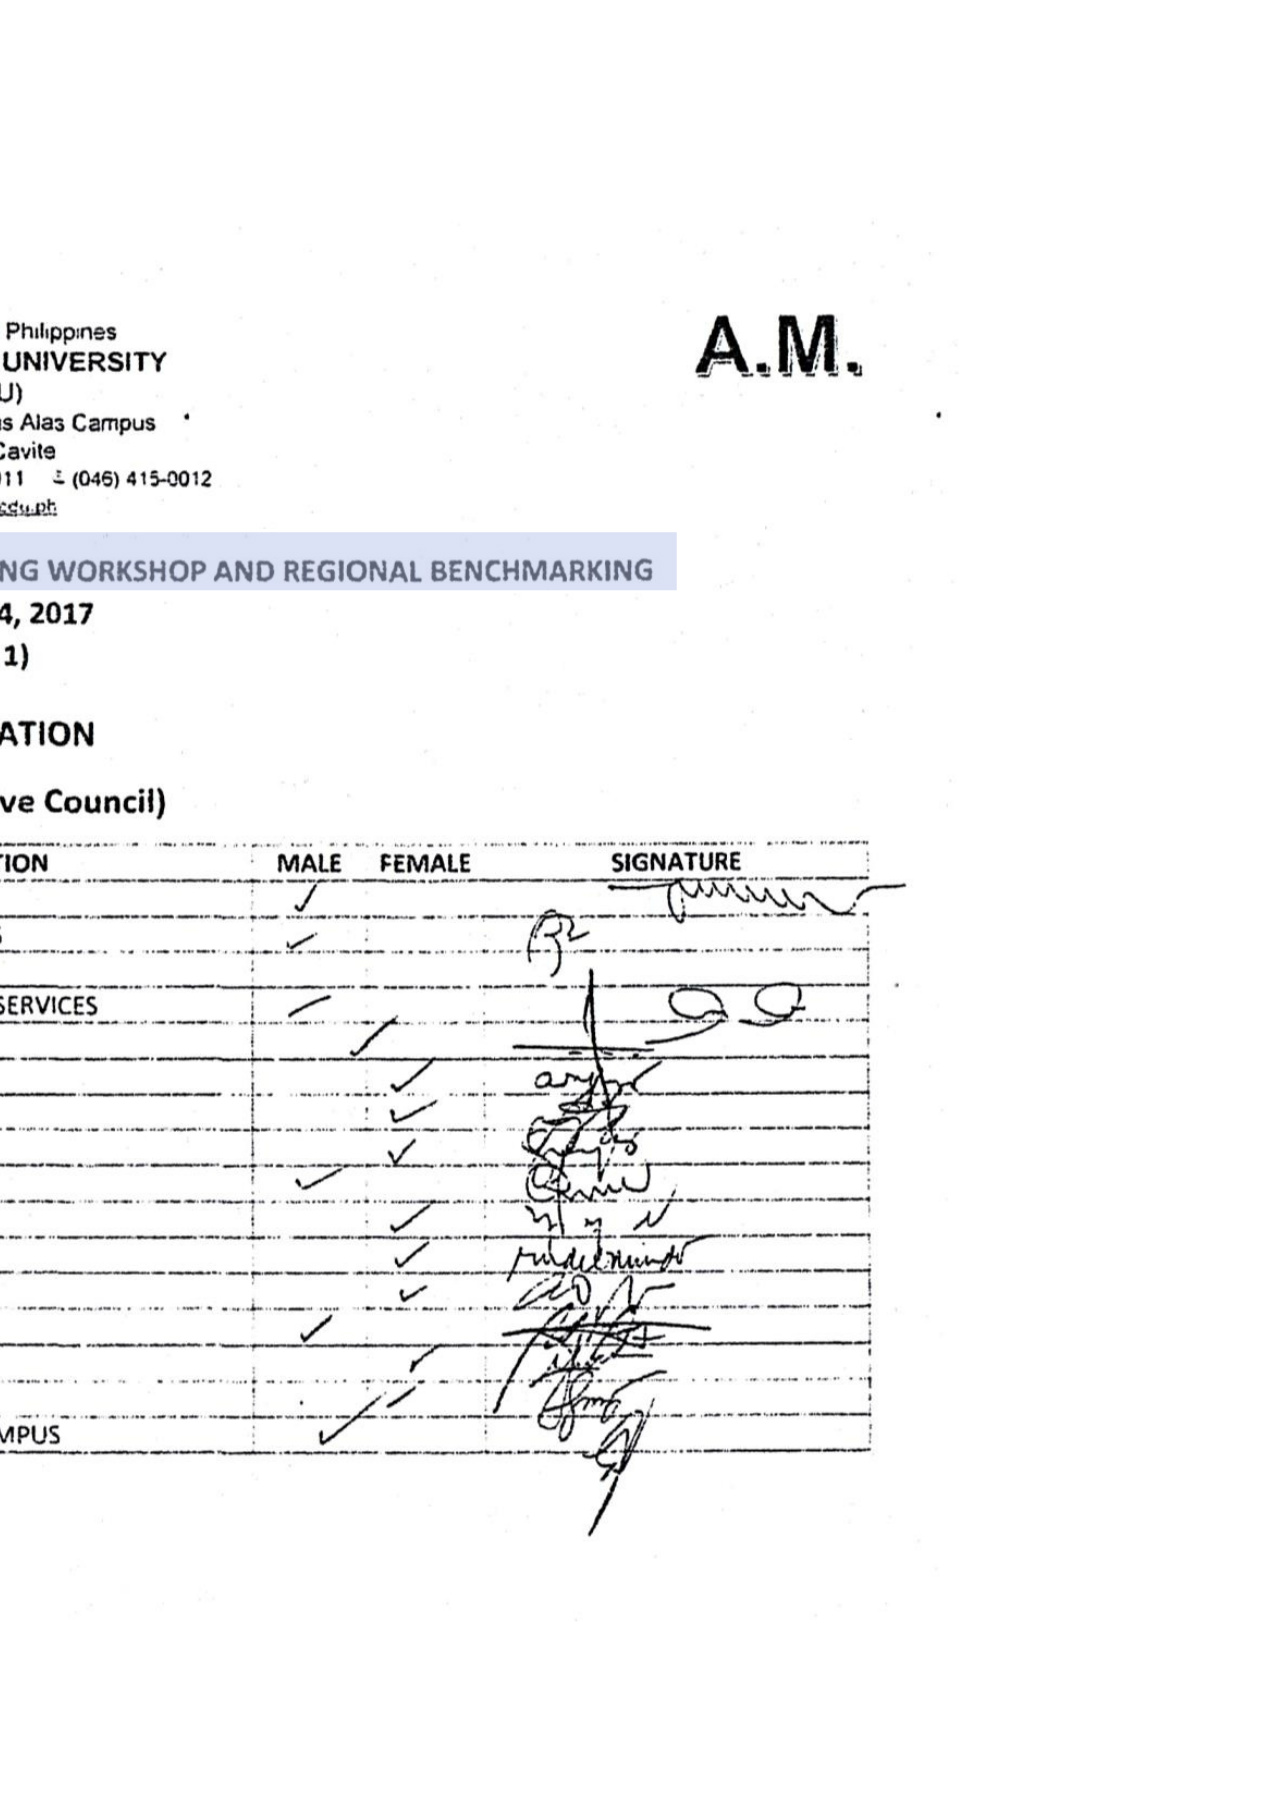 Philippines
A.M.
UNIVERSITY
U)
s Alas Campus
Cavite
011 (046) 415-0012
edu.ph
NG WORKSHOP AND REGIONAL BENCHMARKING
4, 2017
1)
ATION
ve Council)
TION MALE FEMALE SIGNATURE
S
SERVICES
MPUS